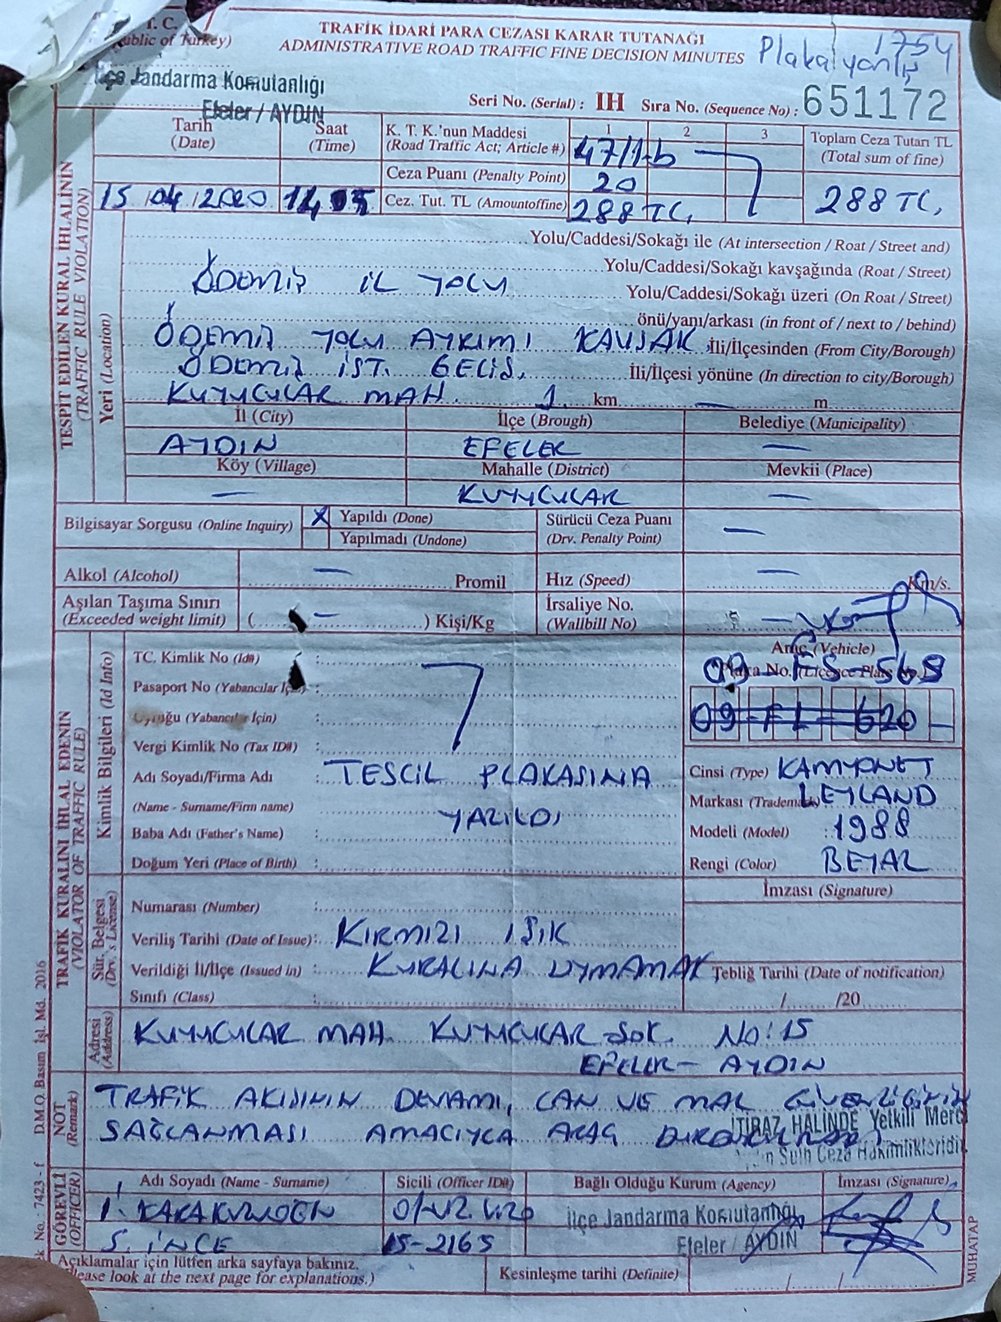 T. C.
TRAFİK İDARİ PARA CEZASI KARAR TUTANAĞI
(Republic of Turkey)
ADMINISTRATIVE ROAD TRAFFIC FINE DECISION MINUTES
1754
Plakalyanlış
İlçe Jandarma Komutanlığı
Efeler / AYDIN
Seri No. (Serial) : IH Sıra No. (Sequence No) : 651172
TESPİT EDİLEN KURAL İHLALİNİN
(TRAFFIC RULE VIOLATION)
Tarih
(Date)
Saat
(Time)
K. T. K.'nun Maddesi
(Road Traffic Act; Article #)
1 2 3
47/1-b
Toplam Ceza Tutarı TL
(Total sum of fine)
Ceza Puanı (Penalty Point) 20
15/04/2020
Cez. Tut. TL (Amountoffine) 288 TL,
288 TL,
Yeri (Location)
Yolu/Caddesi/Sokağı ile (At intersection / Roat / Street and)
Yolu/Caddesi/Sokağı kavşağında (Roat / Street)
ÖDEMİŞ İL YOLU
Yolu/Caddesi/Sokağı üzeri (On Roat / Street)
önü/yanı/arkası (in front of / next to / behind)
ÖDEMİŞ YOLU AYRIMI KAVŞAK İli/İlçesinden (From City/Borough)
ÖDEMİŞ İST. GELİŞ. İli/İlçesi yönüne (In direction to city/Borough)
KUYUCULAR MAH. 1 km — m
İl (City) İlçe (Brough) Belediye (Municipality)
AYDIN EFELER —
Köy (Village) Mahalle (District) Mevkii (Place)
— KUYUCULAR —
Bilgisayar Sorgusu (Online Inquiry) X Yapıldı (Done)
Yapılmadı (Undone)
Sürücü Ceza Puanı
(Drv. Penalty Point) —
Alkol (Alcohol) — Promil Hız (Speed) — Km/s.
Aşılan Taşıma Sınırı
(Exceeded weight limit) ( — ) Kişi/Kg
İrsaliye No.
(Wallbill No) —
TRAFİK KURALINI İHLAL EDENİN
(VIOLATOR OF TRAFFIC RULE)
Kimlik Bilgileri (Id Info)
TC. Kimlik No (Id#) :
Pasaport No (Yabancılar İçin) :
Uyruğu (Yabancılar İçin) :
Vergi Kimlik No (Tax ID#) :
Adı Soyadı/Firma Adı : TESCİL PLAKASINA
(Name - Surname/Firm name)
YAZILDI
Baba Adı (Father's Name) :
Doğum Yeri (Place of Birth) :
Araç (Vehicle)
Plaka No. (Licence Plate No.)
09-FS-568
09-FL-620
Cinsi (Type) KAMYONET
Markası (Trademark) LEYLAND
Modeli (Model) : 1988
Rengi (Color) BEYAZ
İmzası (Signature)
Sür. Belgesi
(Drv.'s License)
Numarası (Number) :
Veriliş Tarihi (Date of Issue): KIRMIZI IŞIK
Verildiği İl/İlçe (Issued in) : KURALINA UYMAMAK
Sınıfı (Class) :
Tebliğ Tarihi (Date of notification)
/ /20
Adresi
(Address)
KUYUCULAR MAH. KUYUCULAR SOK. NO:15
EFELER - AYDIN
NOT
(Remark)
TRAFİK AKIŞININ DEVAMI, CAN VE MAL GÜVENLİĞİNİN
SAĞLANMASI AMACIYLA ARAÇ
İTİRAZ HALİNDE Yetkili Merci
Sulh Ceza Hakimlikleridir
GÖREVLİ
(OFFICER)
Adı Soyadı (Name - Surname) Sicili (Officer ID#) Bağlı Olduğu Kurum (Agency) İmzası (Signature)
İlçe Jandarma Komutanlığı
Efeler / AYDIN
S. İNCE 15-2165
Açıklamalar için lütfen arka sayfaya bakınız.
(Please look at the next page for explanations.)
Kesinleşme tarihi (Definite) / /
MUHATAP
D.M.O. Basım İşl. Md. 2016
k No. : 7423 - f